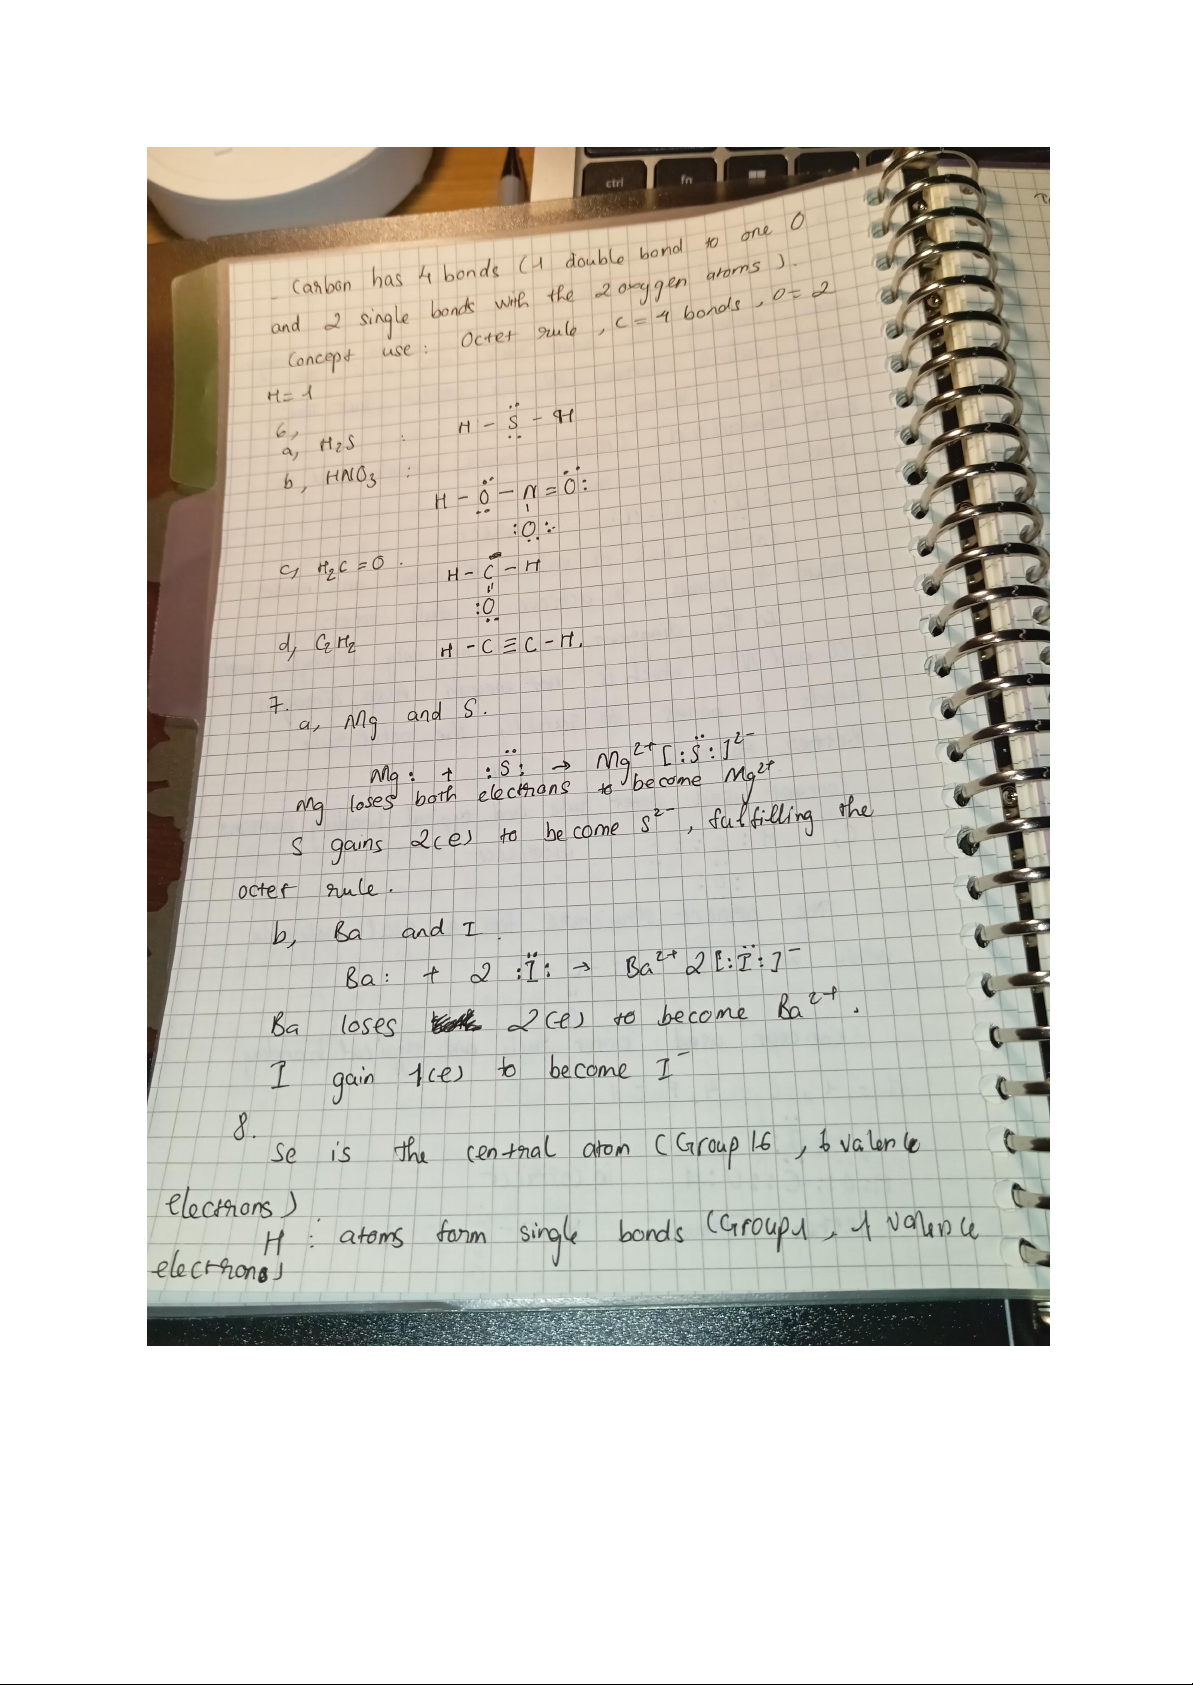 ctrl
fn
- Carbon has 4 bonds (1 double bond to one O
and 2 single bonds with the 2 oxygen atoms).
Concept use: Octet rule, C = 4 bonds, O = 2
H = 1
6,
a, H₂S : H - S̈ - H
b, HNO₃ : H - O - N = O:
:O:
c, H₂C = O . H - C - H
"
:O
d, C₂H₂ H - C ≡ C - H.
7.
a, Mg and S.
Mg: + :S̈: → Mg²⁺ [:S̈:]²⁻
Mg loses both electrons to become Mg²⁺
S gains 2(e) to become S²⁻, fulfilling the
octet rule.
b, Ba and I.
Ba: + 2 :Ï: → Ba²⁺ 2[:Ï:]⁻
Ba loses 2(e) to become Ba²⁺.
I gain 1(e) to become I⁻
8.
Se is the central atom (Group 16, 6 valence
electrons)
H : atoms form single bonds (Group 1, 1 valence
electrons)